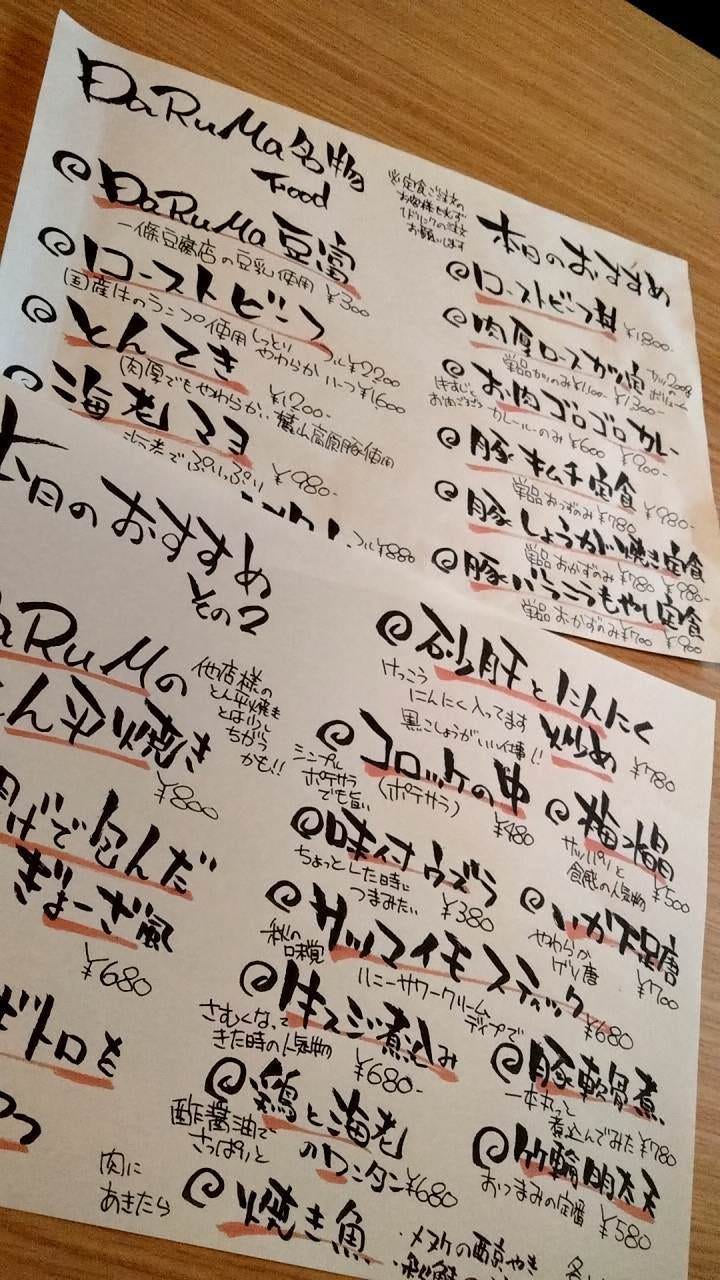 DaRuMa名物
Food
DaRuMa豆富
一條豆腐店の豆乳使用 ¥300
ローストビーフ
国産牛のランプ使用 しっとり やわらか
フル¥2200
ハーフ¥1600
とんてき
¥1200-
肉厚でもやわらか、麓山高原豚使用
海老マヨ
¥980-
フル¥880
※定食ご注文の
お客様も必ず
1ドリンクの注文
お願いします
本日のおすすめ
ローストビーフ丼
¥1800-
肉厚ロースカツ定食
カツ200gのボリューム
単品かつのみ¥1100- ¥1300-
お肉ゴロゴロカレー
牛すじ、お肉ごろごろ
カレールーのみ¥600 ¥900-
豚キムチ定食
単品おかずのみ¥780 ¥980-
豚しょうが焼き定食
単品おかずのみ¥780 ¥980-
豚バラこうもやし定食
単品おかずのみ¥700
本日のおすすめ
その2
DaRuMaの
とん平焼き
他店様の
とん平焼き
とは少し
ちがう
かも!!
¥800
揚げで包んだ
ぎょーざ風
¥680
ビトロを
砂肝とにんにく
炒め
けっこう
にんにく入ってます
黒こしょうがいい仕事!!
¥780
コロッケの中
(ポテサラ)
シンプル
ポテサラ
でも旨い
¥480
味付ウズラ
ちょっとした時に
つまみたい
¥380
サツマイモスティック
秋の
味覚
ハニーサワークリーム
ディップで
¥680
牛スジ煮込み
さむくなって
きた時の人気物
¥680-
鶏と海老
のワンタン
酢醤油で
さっぱりと
¥680
肉に
あきたら
焼き魚
・メヌケの西京やき
梅水晶
サッパリと
食感の人気物
¥500
いか下足唐
やわらか
ゲソ唐
¥700
豚軟骨煮
一本丸っと
煮込んでみた
¥780
竹輪明太天
おつまみの定番
¥580